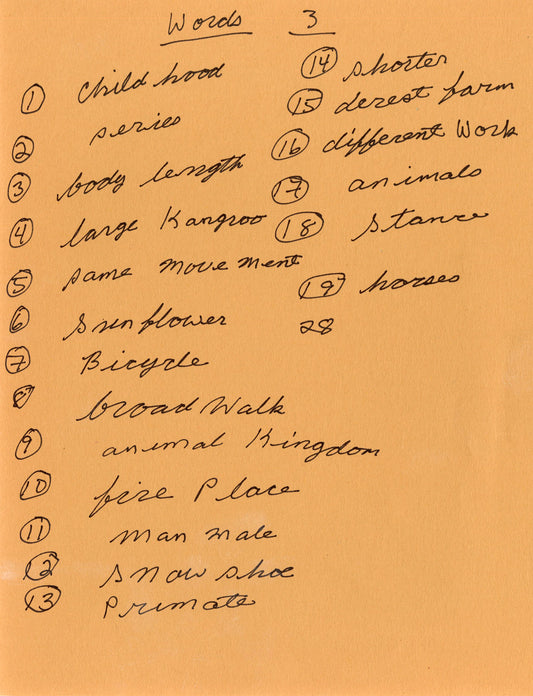 Words 3
1 Child hood
2 series
3 body length
4 large Kangroo
5 same movement
6 sunflower
7 Bicycle
8 broad Walk
9 animal Kingdom
10 fire Place
11 man male
12 snow shoe
13 Primate
14 shorter
15 derest farm
16 different Work
17 animals
18 Stance
19 horses
28